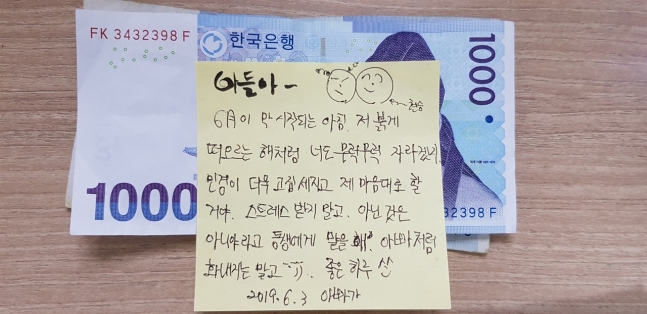 FK 3432398 F
한국은행
1000
1000
32398 F
아들아~
천승
6月이 막 시작되는 아침. 저 붉게
떠오르는 해처럼 너도 무럭무럭 자라겠네.
민경이 더욱 고집 세지고 제 마음대로 할
거야. 스트레스 받지 말고. 아닌 것은
아니야라고 동생에게 말을 해. 아빠처럼
화내지는 말고^^)). 좋은 하루
2019. 6. 3 아빠가